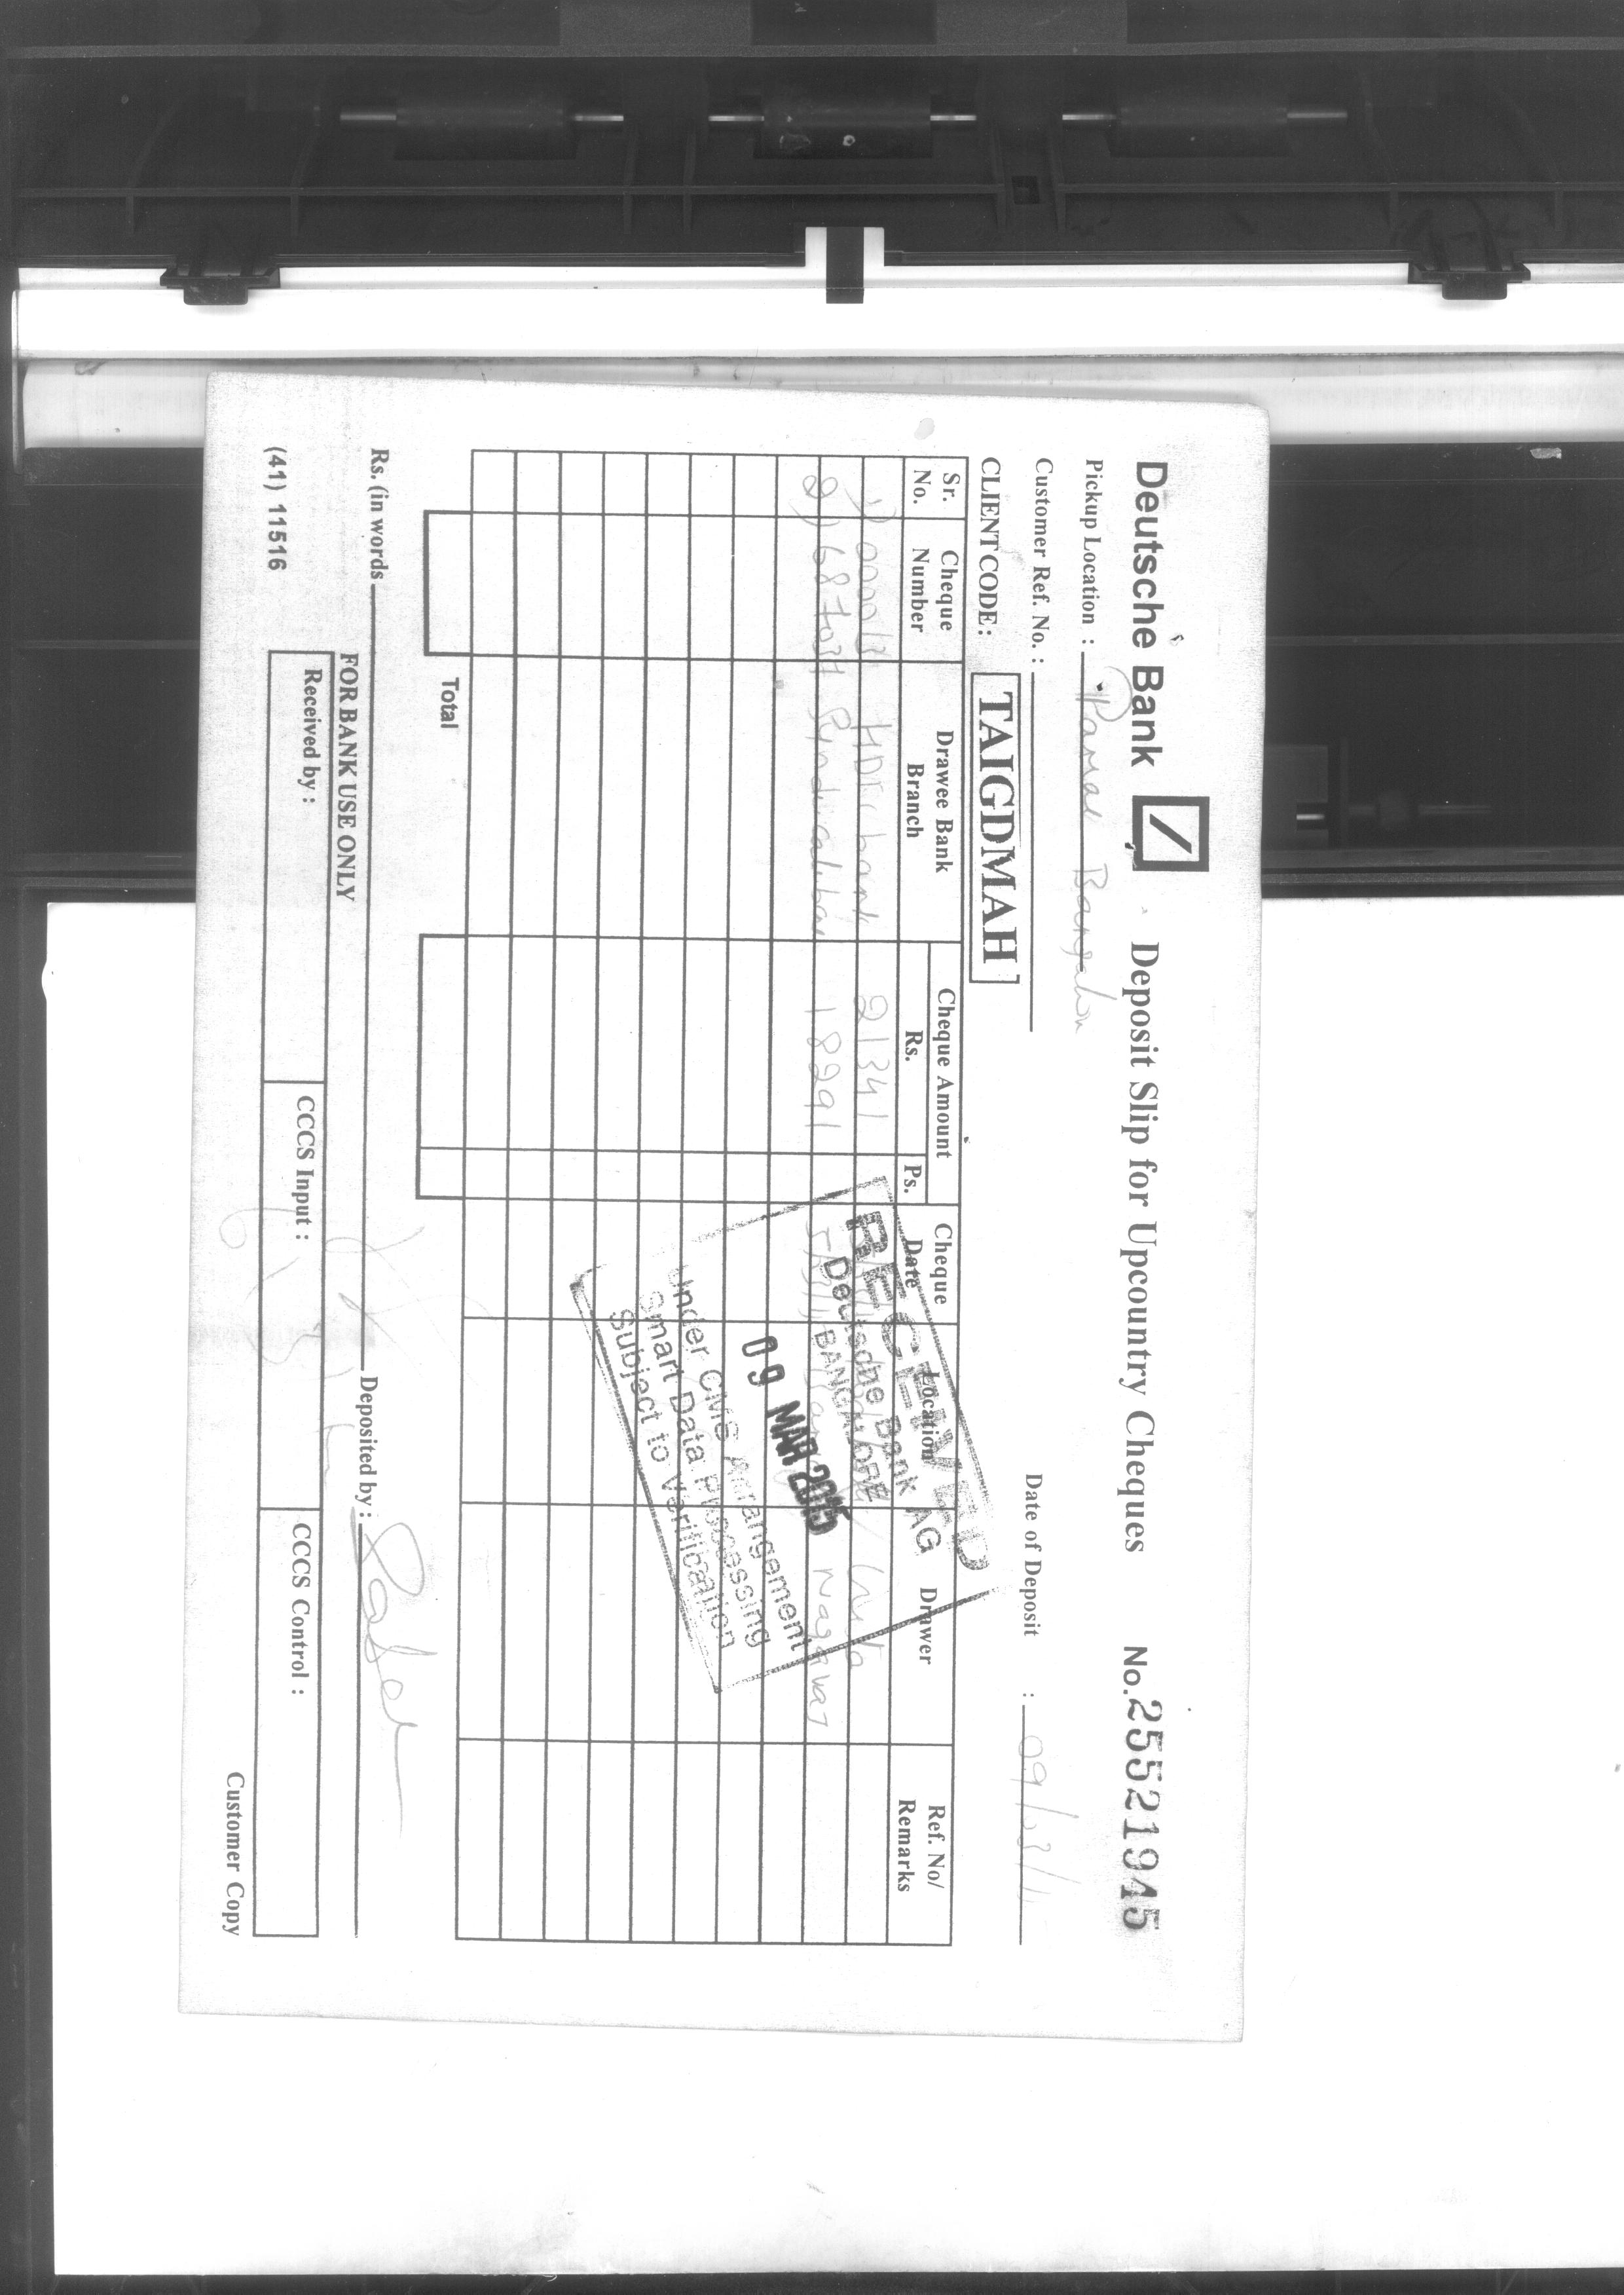 Deutsche Bank Deposit Slip for Upcountry Cheques No. 25521945
Pickup Location :
Customer Ref. No. : Date of Deposit :
CLIENT CODE: TAIGDMAH
Sr. No. Cheque Number Drawee Bank Branch Cheque Amount Rs. Ps. Cheque Date Location Drawer Ref. No/ Remarks
1) HDFC bank 21341
2) 18291
RECEIVED
Deutsche Bank AG
BANGALORE
09 MAR 2015
Under CMS Arrangement
Smart Data Processing
Subject to Verification
Total
Rs. (in words Deposited by :
FOR BANK USE ONLY
Received by : CCCS Input : CCCS Control :
(41) 11516
Customer Copy